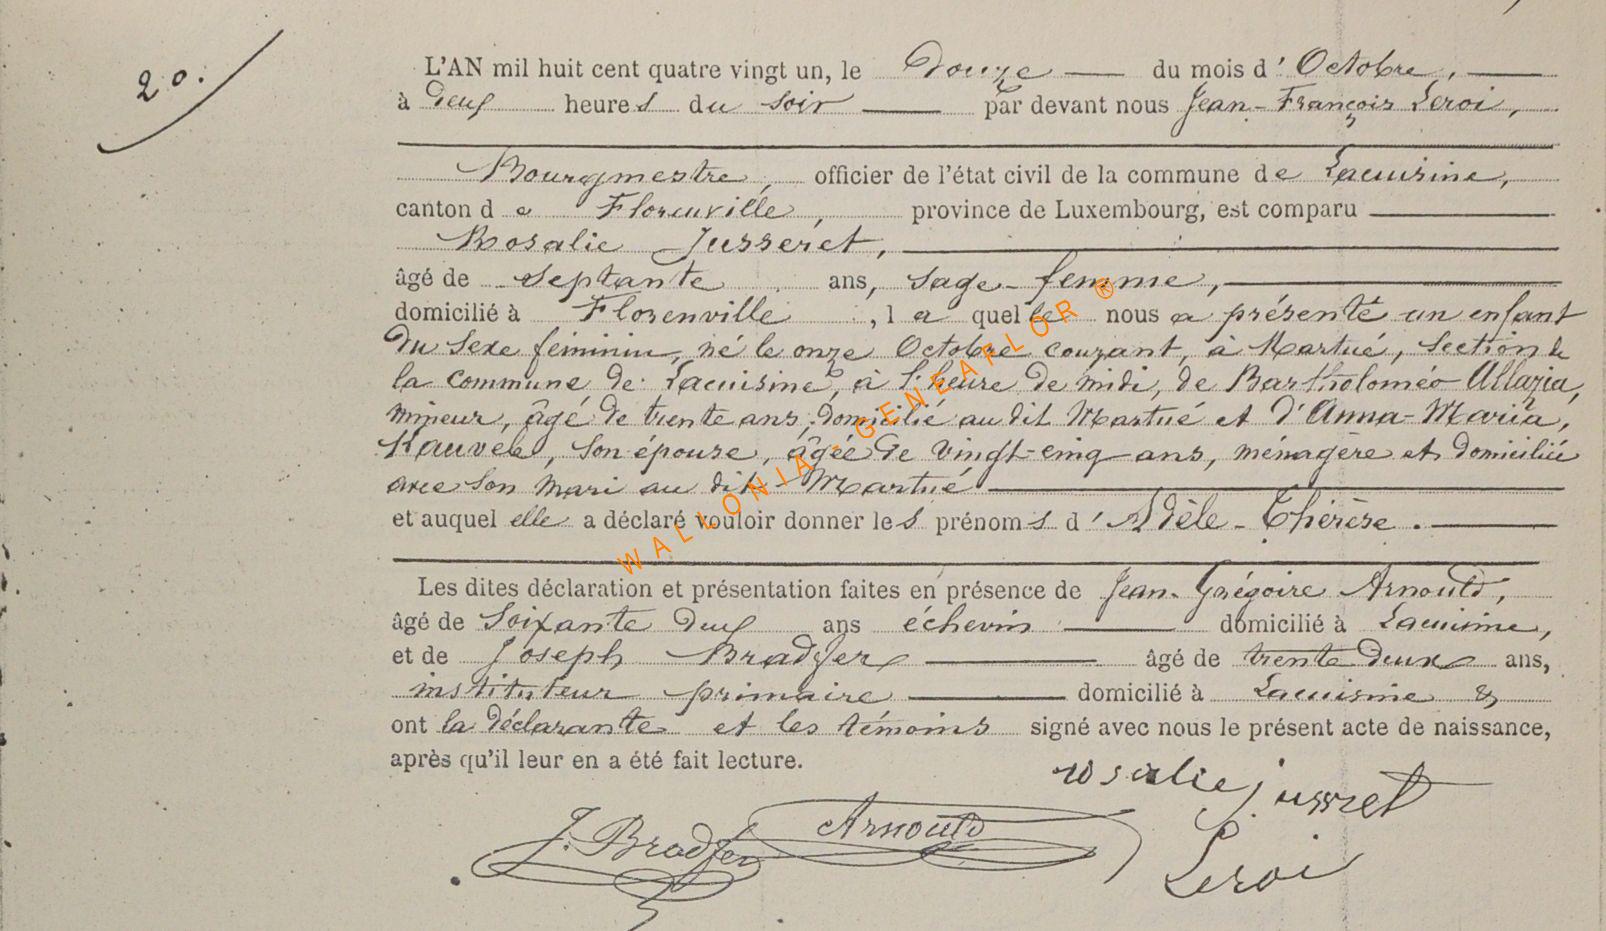 20.
L'AN mil huit cent quatre vingt un, le Douze du mois d' Octobre,
à deux heures du soir par devant nous Jean-François Leroi,
Bourgmestre, officier de l'état civil de la commune de Lacuisine,
canton de Florenville, province de Luxembourg, est comparu
Rosalie Jusseret,
âgé de septante ans, sage-femme,
domicilié à Florenville, laquelle nous a présenté un enfant
du sexe féminin, né le onze Octobre courant, à Martué, section de
la commune de Lacuisine, à l'heure de midi, de Bartholoméo Allazia,
mineur, âgé de trente ans, domicilié au dit Martué et d'Anna-Maria,
son épouse, âgée de vingt-cinq ans, ménagère et domiciliée
avec son mari au dit Martué
et auquel elle a déclaré vouloir donner les prénoms d'Adèle-Thérèse.
Les dites déclaration et présentation faites en présence de Jean-Grégoire Arnould,
âgé de soixante deux ans échevin domicilié à Lacuisine,
et de Joseph Bradfer âgé de trente deux ans,
instituteur primaire domicilié à Lacuisine &
ont la déclarante et les témoins signé avec nous le présent acte de naissance,
après qu'il leur en a été fait lecture.
rosalie jusseret
J. Bradfer Arnould
Leroi
WALLONIA - GENEARLOR ®